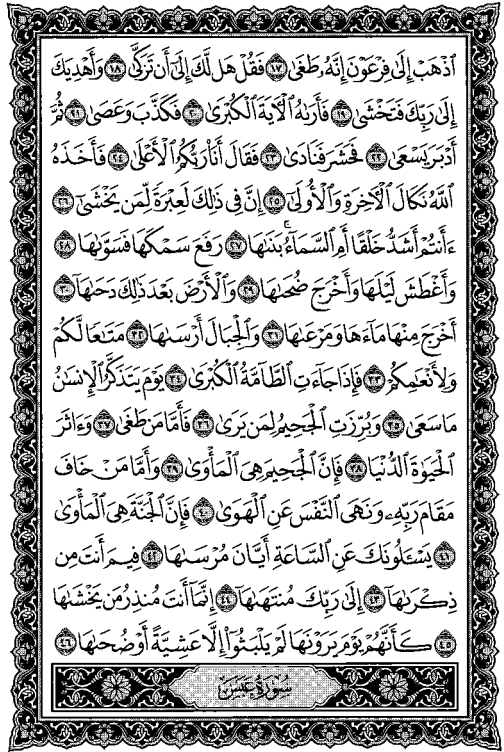 ٱذْهَبْ إِلَىٰ فِرْعَوْنَ إِنَّهُۥ طَغَىٰ ١٧ فَقُلْ هَل لَّكَ إِلَىٰٓ أَن تَزَكَّىٰ ١٨ وَأَهْدِيَكَ
إِلَىٰ رَبِّكَ فَتَخْشَىٰ ١٩ فَأَرَىٰهُ ٱلْـَٔايَةَ ٱلْكُبْرَىٰ ٢٠ فَكَذَّبَ وَعَصَىٰ ٢١ ثُمَّ
أَدْبَرَ يَسْعَىٰ ٢٢ فَحَشَرَ فَنَادَىٰ ٢٣ فَقَالَ أَنَا۠ رَبُّكُمُ ٱلْأَعْلَىٰ ٢٤ فَأَخَذَهُ
ٱللَّهُ نَكَالَ ٱلْـَٔاخِرَةِ وَٱلْأُولَىٰٓ ٢٥ إِنَّ فِى ذَٰلِكَ لَعِبْرَةً لِّمَن يَخْشَىٰٓ ٢٦
ءَأَنتُمْ أَشَدُّ خَلْقًا أَمِ ٱلسَّمَآءُ ۚ بَنَىٰهَا ٢٧ رَفَعَ سَمْكَهَا فَسَوَّىٰهَا ٢٨
وَأَغْطَشَ لَيْلَهَا وَأَخْرَجَ ضُحَىٰهَا ٢٩ وَٱلْأَرْضَ بَعْدَ ذَٰلِكَ دَحَىٰهَآ ٣٠
أَخْرَجَ مِنْهَا مَآءَهَا وَمَرْعَىٰهَا ٣١ وَٱلْجِبَالَ أَرْسَىٰهَا ٣٢ مَتَٰعًا لَّكُمْ
وَلِأَنْعَٰمِكُمْ ٣٣ فَإِذَا جَآءَتِ ٱلطَّآمَّةُ ٱلْكُبْرَىٰ ٣٤ يَوْمَ يَتَذَكَّرُ ٱلْإِنسَٰنُ
مَا سَعَىٰ ٣٥ وَبُرِّزَتِ ٱلْجَحِيمُ لِمَن يَرَىٰ ٣٦ فَأَمَّا مَن طَغَىٰ ٣٧ وَءَاثَرَ
ٱلْحَيَوٰةَ ٱلدُّنْيَا ٣٨ فَإِنَّ ٱلْجَحِيمَ هِىَ ٱلْمَأْوَىٰ ٣٩ وَأَمَّا مَنْ خَافَ
مَقَامَ رَبِّهِۦ وَنَهَى ٱلنَّفْسَ عَنِ ٱلْهَوَىٰ ٤٠ فَإِنَّ ٱلْجَنَّةَ هِىَ ٱلْمَأْوَىٰ
٤١ يَسْـَٔلُونَكَ عَنِ ٱلسَّاعَةِ أَيَّانَ مُرْسَىٰهَا ٤٢ فِيمَ أَنتَ مِن
ذِكْرَىٰهَآ ٤٣ إِلَىٰ رَبِّكَ مُنتَهَىٰهَآ ٤٤ إِنَّمَآ أَنتَ مُنذِرُ مَن يَخْشَىٰهَا
٤٥ كَأَنَّهُمْ يَوْمَ يَرَوْنَهَا لَمْ يَلْبَثُوٓا۟ إِلَّا عَشِيَّةً أَوْ ضُحَىٰهَا ٤٦
سُورَةُ عَبَسَ